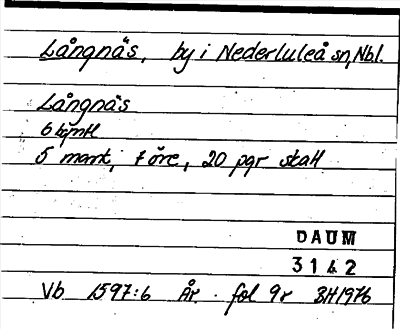 Långnäs, by i Nederluleå sn, Nbl.
Långnäs
5 mark, 7 öre, 20 pgr skatt
DAUM
3142
Vb 1597:6 År. fol 9r BH1976